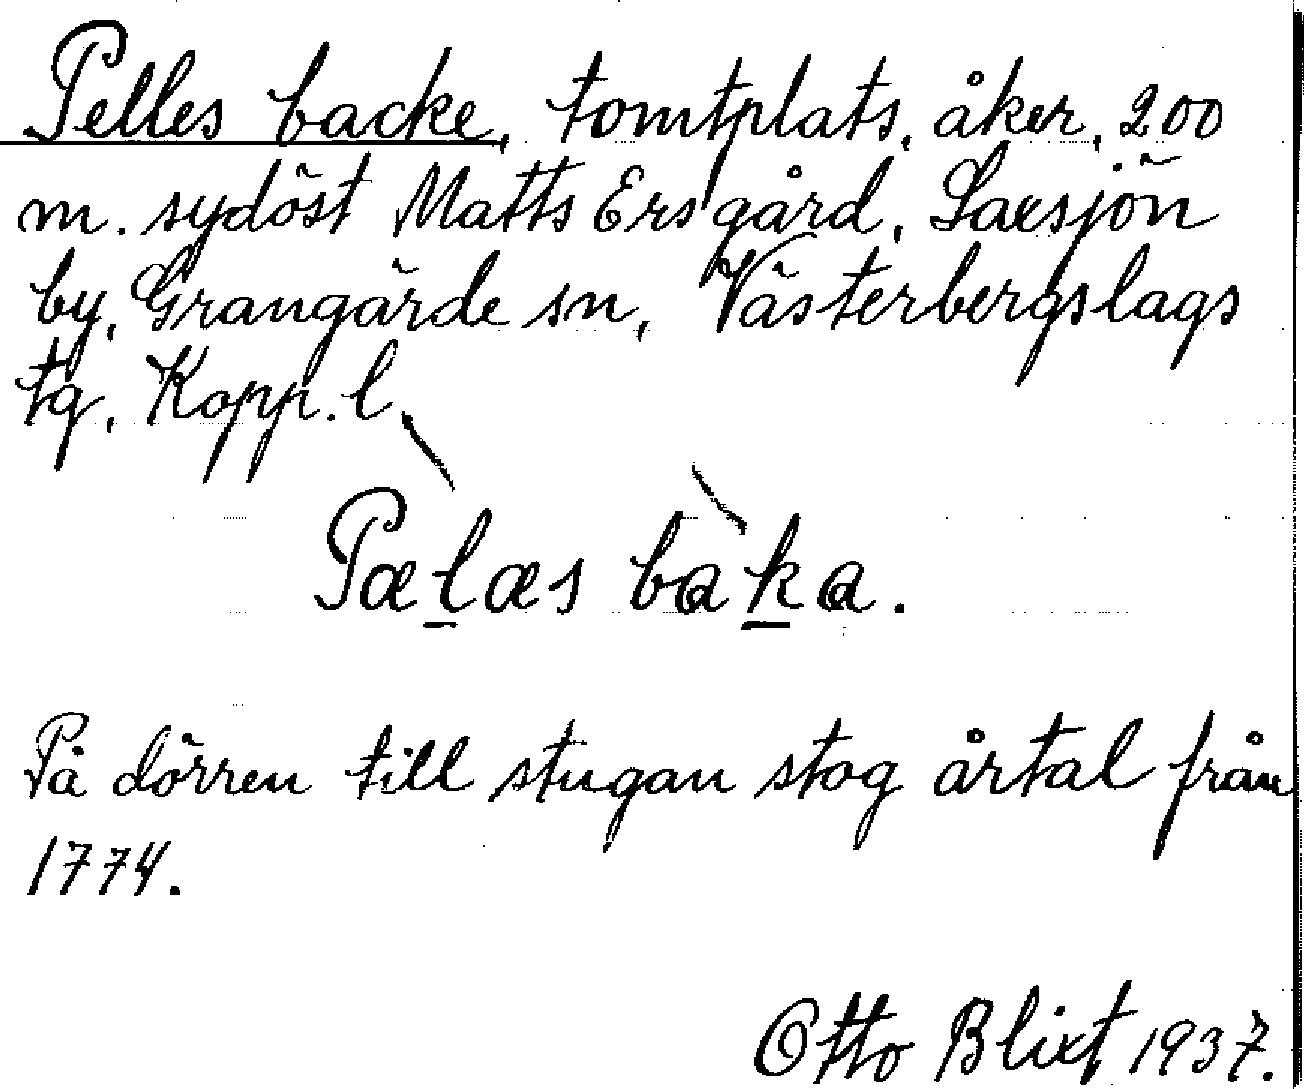 Pelles backe, tomtplats, åker, 200
m. sydöst Matts Ers gård, Laxsjön
by, Grangärde sn, Västerbergslags
tg, Kopp. l.
Pælæs bàka.
På dörren till stugan stog årtal från
1774.
Otto Blixt 1937.